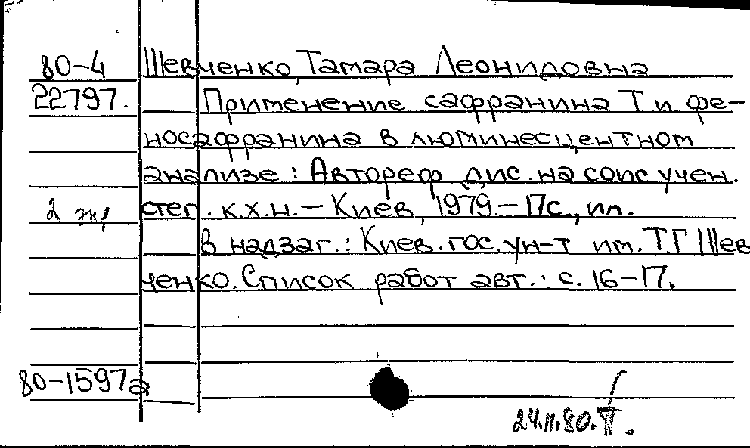 80-4 Шевченко, Тамара Леонидовна
22797. Применение сафранина Т и фе-
носафранина в люминесцентном
анализе: Автореф. дис. на соис. учен.
2 экз степ. к.х.н. – Киев, 1979. – 17с., ил.
В надзаг.: Киев. гос. ун-т им. Т.Г Шев
ченко. Список работ авт.: с. 16-17.
80-1597а
24.11.80.